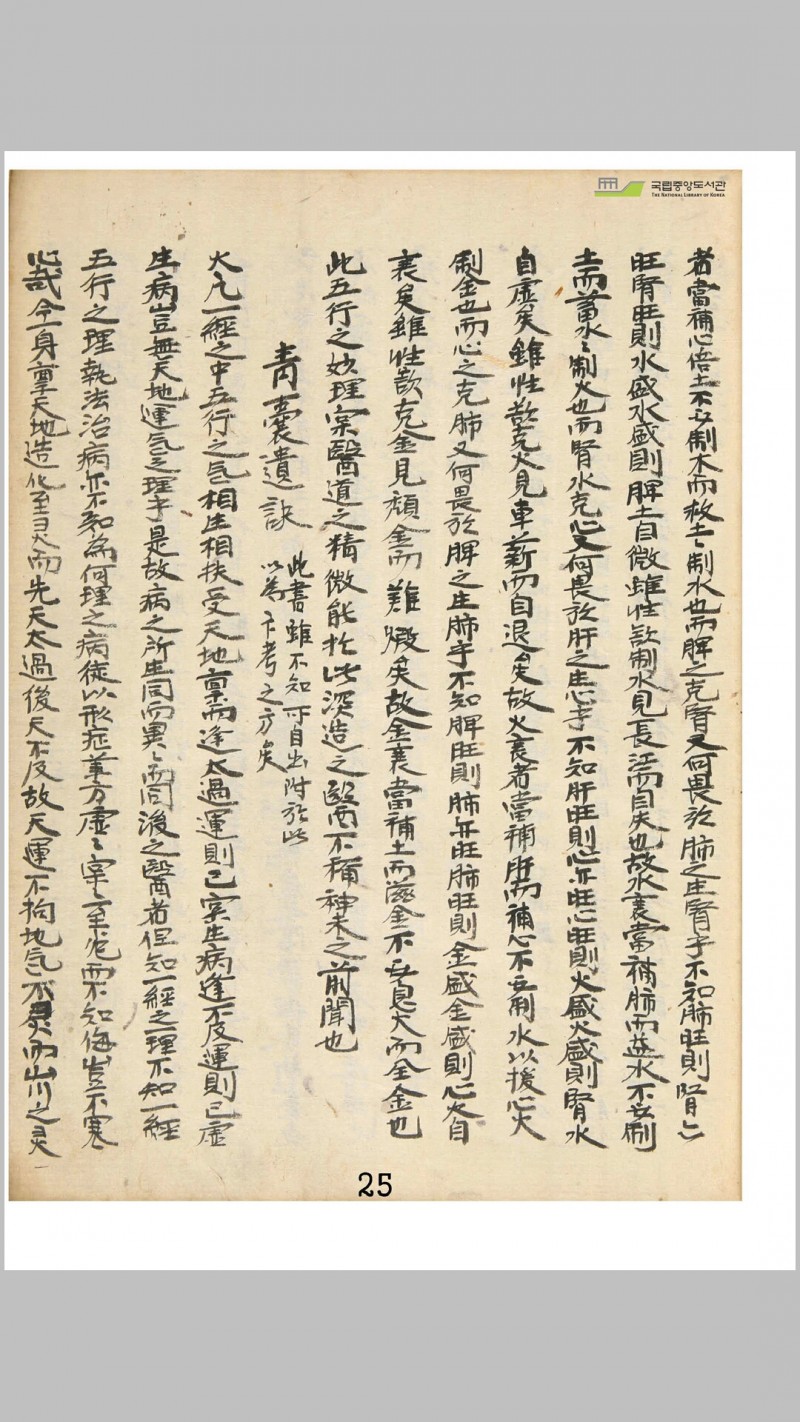 국립중앙도서관
THE NATIONAL LIBRARY OF KOREA
者當補心倍土不必制木而救土〻制水也而脾之克腎又何畏於肺之生腎乎不知肺旺則腎亡
旺腎旺則水盛水盛則脾土自微雖性欲制水見長江而自失也故水衰當補肺而益水不必制
土而蓄水〻制火也而腎水克心又何畏於肝之生心乎不知肝旺則心亦旺心旺則火盛火盛則腎水
自虛矣雖性欲克火見車薪而自退矣故火衰者當補肝而補心不必制水以援心火
制金也而心之克肺又何畏於脾之生肺乎不知脾旺則肺亦旺肺旺則金盛金盛則心火自
衰矣雖性欲克金見頑金而難煅矣故金衰當補土而滋金不必息火而全金也
此五行之妙理宗醫道之精微能於此深造之醫而不稱神未之前聞也
靑囊遺訣
此書雖不知所自出附於此
以為下考之方矣
大凡一經之中五行之气相生相扶受天地稟而逢太過運則已实生病逢不及運則已虛
生病豈無天地運气之理乎是故病之所生同而異〻而同後之醫者但知一經之理不知一經
五行之理執法治病亦不知為何理之病徒以形症筆方虛〻実〻至死而不知悔豈不寒
心哉今一身稟天地造化至灵而先天太過後天不及故天運不拘地气不灵而山川之灵
25